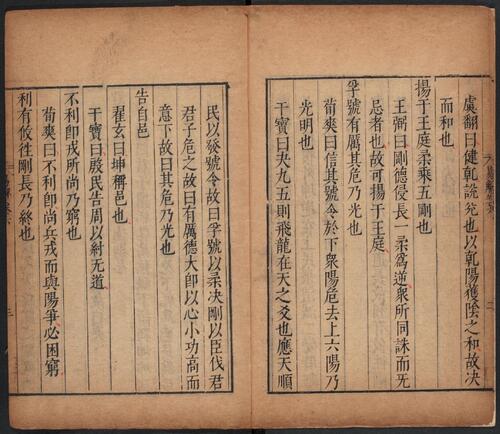 虞翻曰健乾說兊也以乾陽獲陰之和故决
而和也
揚于王庭柔乘五剛也
王弼曰剛德侵長一柔爲逆衆所同誅而无
忌者也故可揚于王庭
孚號有厲其危乃光也
荀爽曰信其號令於下衆陽危去上六陽乃
光明也
干寶曰夬九五則飛龍在天之爻也應天順
民以發號令故曰孚號以柔决剛以臣伐君
君子危之故曰有厲德大卽以心小功高而
意下故曰其危乃光也
告自邑
翟玄曰坤稱邑也
干寶曰殷民告周以紂无道
不利卽戎所尚乃窮也
荀爽曰不利卽尚兵戎而與陽爭必困窮
利有攸往剛長乃終也